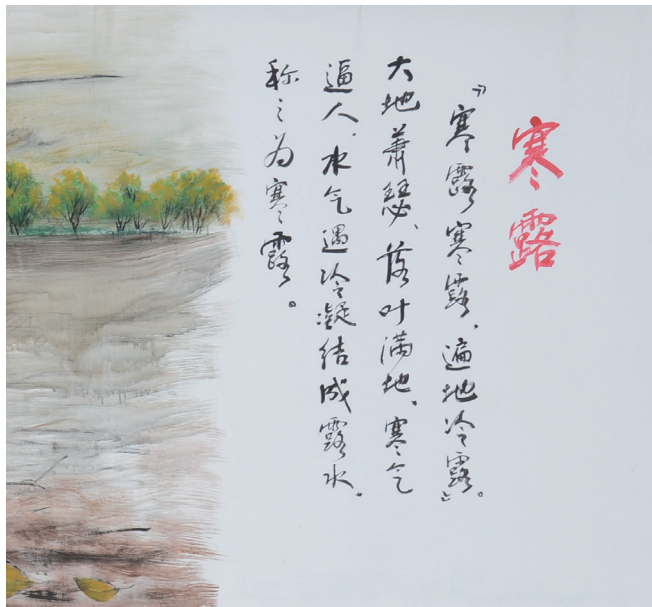 寒露
“寒露寒露，遍地冷露”。
大地萧瑟、落叶满地、寒气
逼人，水气遇冷凝结成露水，
称之为寒露。